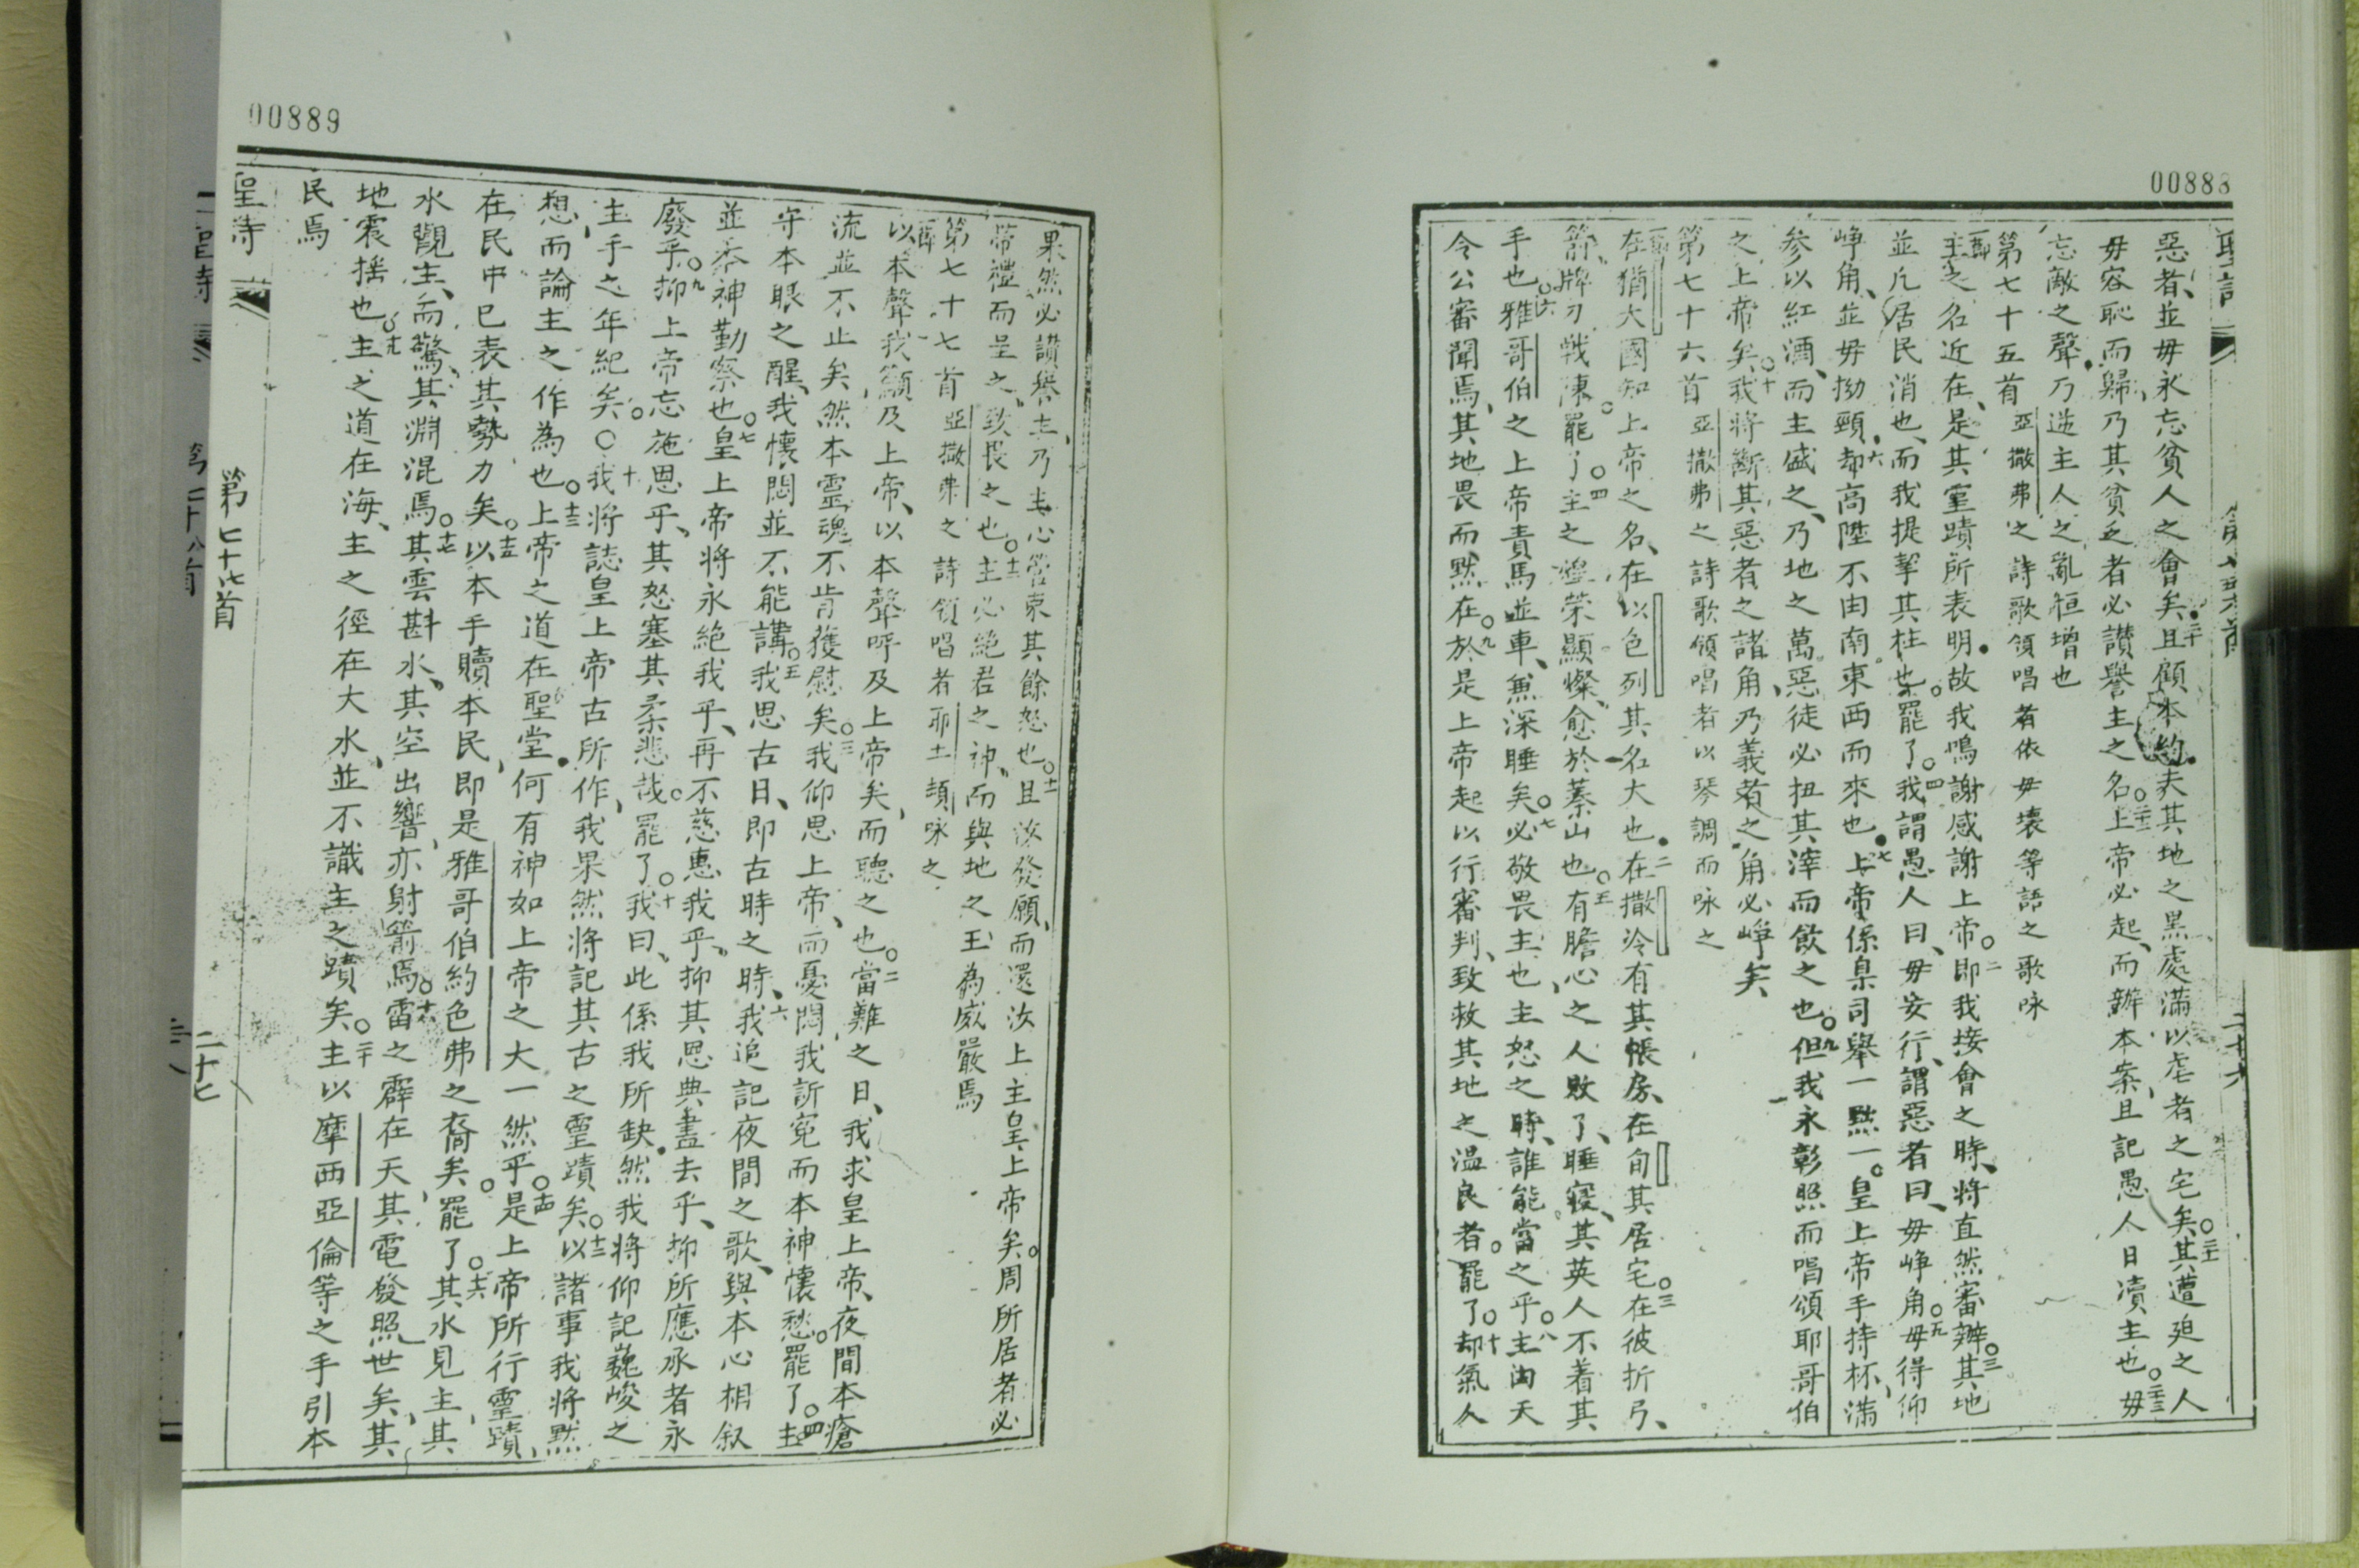 00888
惡者、並毋永忘貧人之會矣。二十且顧本約。夫其地之黑處滿以虐者之宅矣。二十一其遭廹之人
毋容恥而歸、乃其貧乏者必讚譽主之名。二十二上帝必起、而辦本案、且記愚人日瀆主也。二十三毋
忘敵之聲、乃逆主人之亂恒增也
第七十五首 亞撒弗之詩歌領唱者依毋壞等語之歌咏
一節主之名近在、是其靈蹟所表明。故我鳴謝感謝上帝。二即我接會之時、將直然審辦。三其地
並凡居民消也、而我提挈其柱也。罷了。四我謂愚人曰、毋妄行、謂惡者曰、毋崢角。五毋得仰
崢角、並毋拗頸。六却高陞不由南東西而來也。七上帝係臬司舉一黜一。皇上帝手持杯、滿
參以紅酒、而主盛之、乃地之萬惡徒必扭其滓而飲之也。九但我永彰照而唱頌耶哥伯
之上帝矣。十我將斷其惡者之諸角、乃義者之角必崢矣
第七十六首 亞撒弗之詩歌領唱者以琴調而咏之
一節在猶大國知上帝之名、在以色列其名大也。二在撒冷有其帳房、在旬其居宅。三在彼折弓、
箭、牌刀戰陳。罷了。四主之煌榮顯燦、愈於蓁山也。五有膽心之人敗了、睡寢、其英人不着其
手也。六雅哥伯之上帝責馬並車、無深睡矣。七必敬畏主也、主怒之時、誰能當之乎。八主由天
令公審聞焉、其地畏而默在。九於是上帝起以行審判、致救其地之温良者。罷了。十却氣人
00889
果然必讚譽主、乃主心管束其餘怒也。十一且汝發願、而還汝上主皇上帝矣。周所居者必
帶禮而呈之、致畏之也。十二主必絕君之神、而與地之王為威嚴焉
第七十七首 亞撒弗之詩領唱者耶土頓咏之
一節以本聲我籲及上帝、以本聲呼及上帝矣、而聽之也。二當難之日、我求皇上帝、夜間本瘡
流並不止矣、然本靈魂不肯獲慰矣。三我仰思上帝、而憂悶我訴寃而本神懷愁。罷了。四主
守本眼之醒、我懷悶並不能講。五我思古日、即古時之時、六我追記夜間之歌、與本心相叙
並本神勤察也。七皇上帝將永絕我乎、再不慈惠我乎。抑其恩典盡去乎、抑所應承者永
廢乎。九抑上帝忘施恩乎、其怒塞其柔悲哉。罷了。十我曰、此係我所缺。然我將仰記巍峻之
主手之年紀矣。○十一我將誌皇上帝古所作、我果然將記其古之靈蹟矣。十二以諸事我將默
想、而論主之作為也。十三上帝之道在聖堂。何有神如上帝之大一然乎。十四是上帝所行靈蹟、
在民中已表其勢力矣。十五以本手贖本民、即是雅哥伯約色弗之裔矣。罷了。十六其水見主、其
水觀主、而驚、其淵混焉。十七其雲斟水、其空出響、亦射箭焉。十八雷之霹在天、其電發照世矣、其
地震搖也。十九主之道在海、主之徑在大水、並不識主之蹟矣。二十主以摩西亞倫等之手引本
民焉
聖詩
第七十七首
二十七